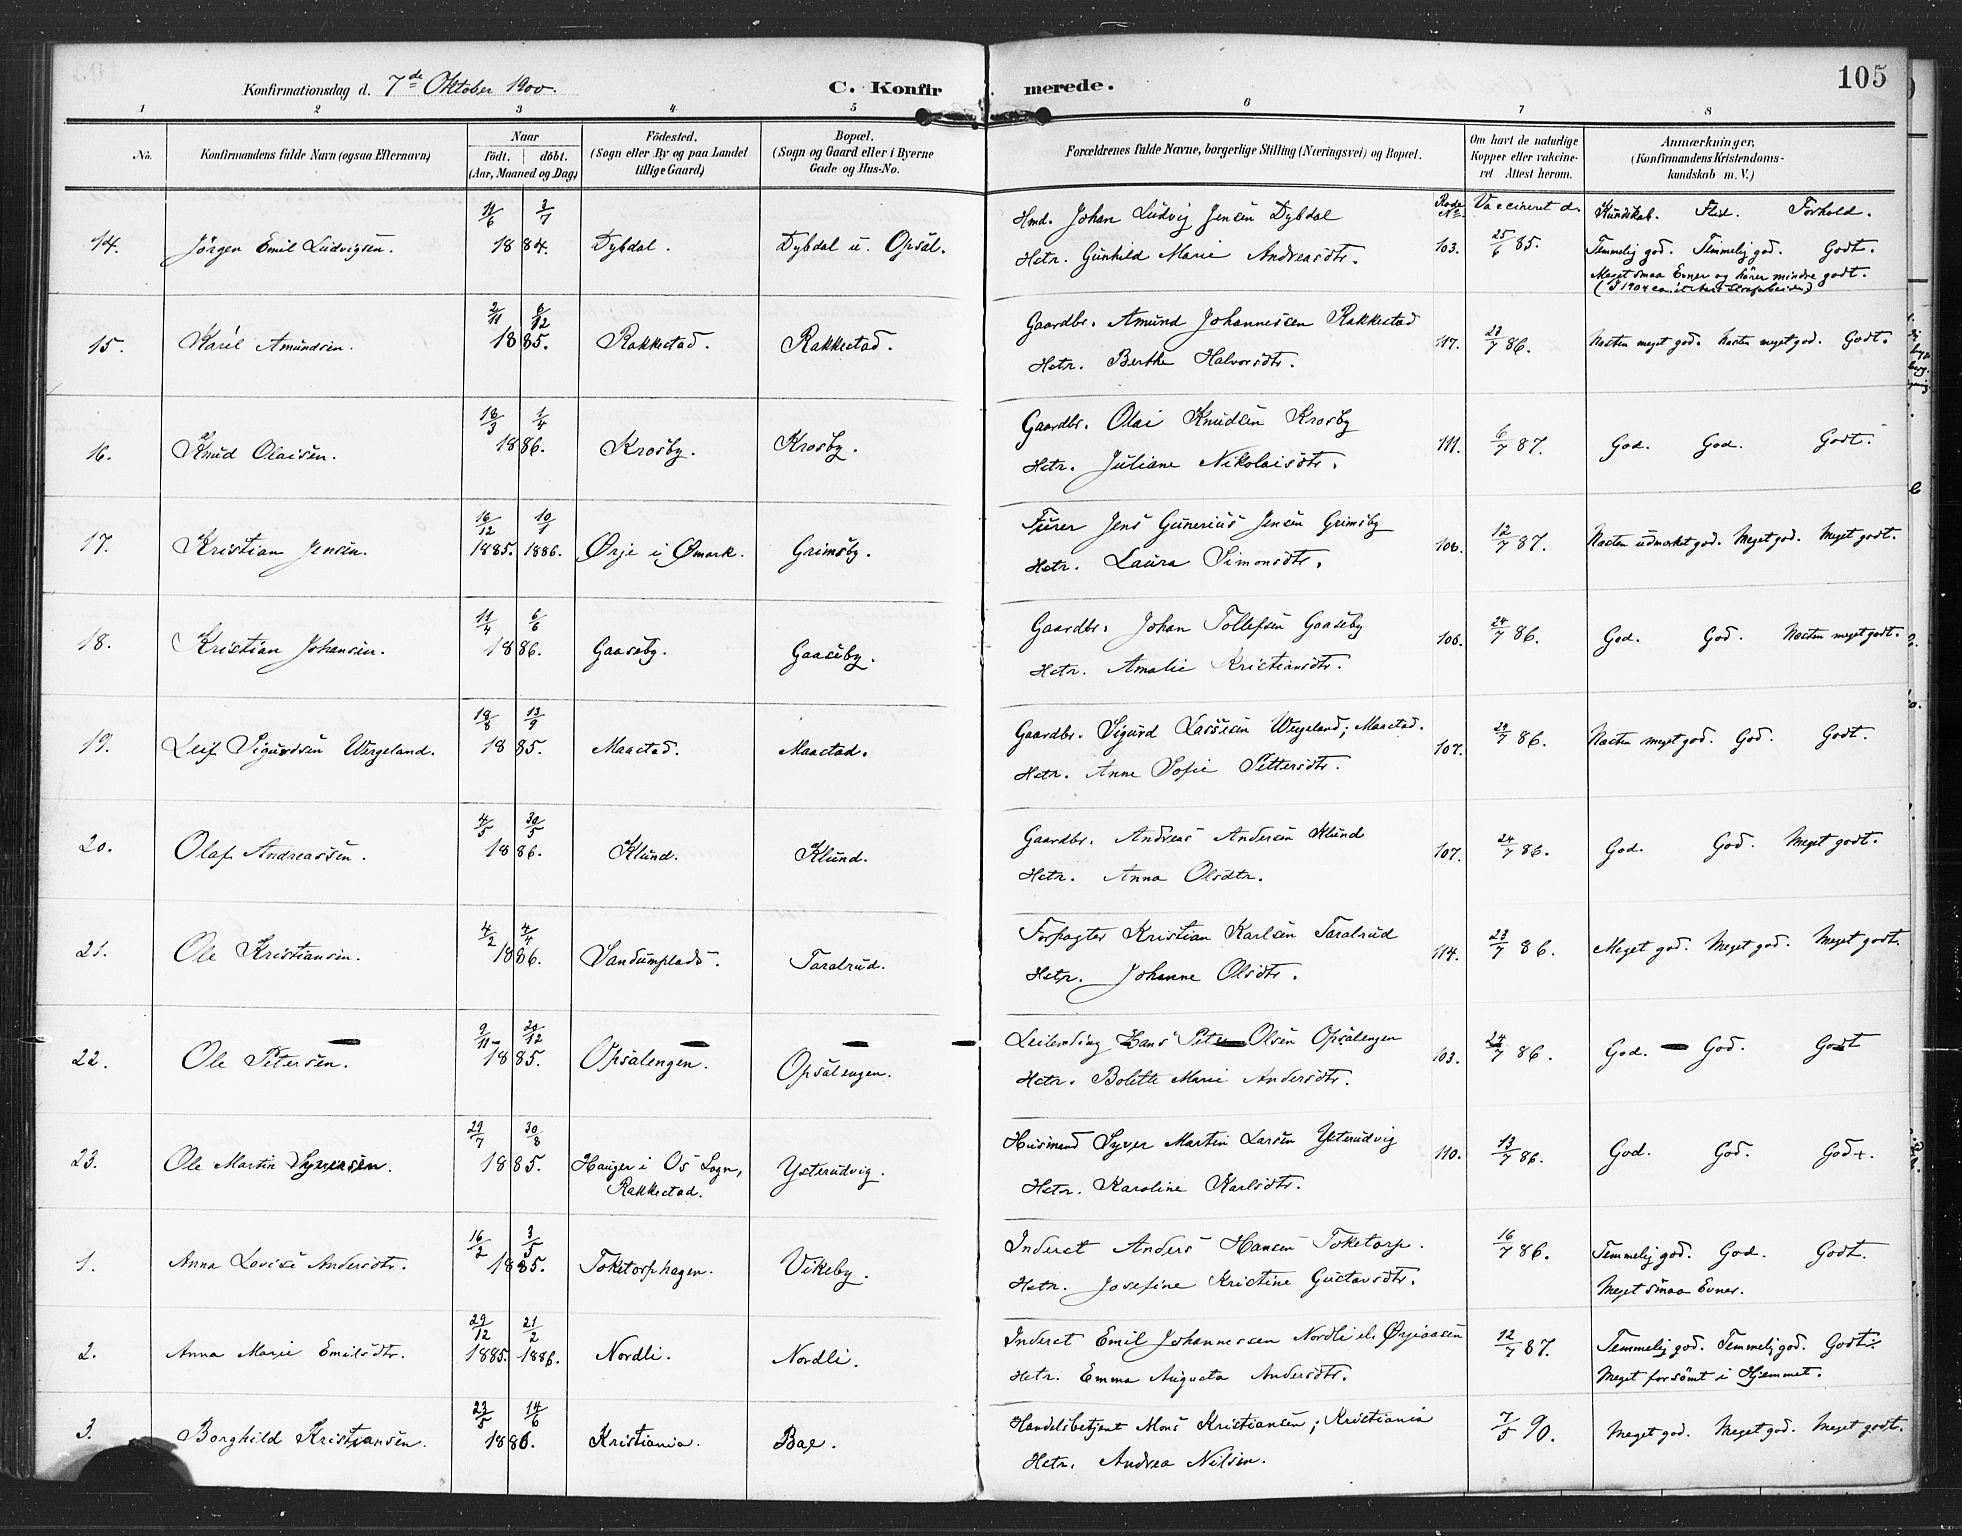 105
Konfirmationsdag d. 7de Oktober 1900.
C. Konfirmerede.
1 2 3 4 5 6 7 8
No.
Konfirmandens fulde Navn (ogsaa Efternavn)
Naar
födt. döbt.
(Aar, Maaned og Dag)
Födested.
(Sogn eller By og paa Landet
tillige Gaard)
Bopæl.
(Sogn og Gaard eller i Byerne
Gade og Hus-No.
Forældrenes fulde Navne, borgerlige Stilling (Næringsvei) og Bopæl.
Om havt de naturlige
Kopper eller vakcine-
ret Attest herom.
Anmærkninger,
(Konfirmandens Kristendoms-
kundskab m. V.)
Rode No. Vaccineret d. Kundskab. Flid. Forhold.
14. Jörgen Emil Ludvigsen. 11/6 3/7 1884. Dybdal. Dybdal u. Opsal. Hmd. Johan Ludvig Jensen Dybdal
Hstr. Gunhild Marie Andreasdtr. 103. 25/6 85. Temmelig god. Temmelig god. Godt.
Meget smaa Evner og hörer mindre godt.
15. Karel Amundsen. 2/11 6/12 1885. Rakkestad. Rakkestad. Gaardbr. Amund Johannessen Rakkestad
Hstr. Berthe Halvorsdtr. 117. 23/7 86. Næsten meget god. Næsten meget god. Godt.
16. Knud Olaisen. 18/3 1/4 1886. Krosby. Krosby. Gaardbr. Olai Knudsen Krosby
Hstr. Juliane Nikolaisdtr. 111. 6/7 87. God. God. Godt.
17. Kristian Jensen. 16/12 1885. 10/1 1886. Ørje i Ømark. Grimsby. Furer Jens Gunerius Jensen Grimsby
Hstr. Laura Simonsdtr. 106. 12/7 87. Næsten udmærket god. Meget god. Meget godt.
18. Kristian Johansen. 11/4 6/6 1886. Gaaseby. Gaaseby. Gaardbr. Johan Tollefsen Gaaseby
Hstr. Amalie Kristiansdtr. 106. 24/7 86. God. God. Næsten meget godt.
19. Leif Sigurdsen Wergeland. 18/8 13/9 1885. Maastad. Maastad. Gaardbr. Sigurd Lassesen Wegeland; Maastad.
Hstr. Anne Sofie Pettersdtr. 107. 24/7 86. Næsten meget god. God. Godt.
20. Olaf Andreassen. 4/5 30/5 1886. Klund. Klund. Gaardbr. Andreas Andersen Klund
Hstr. Anna Olsdtr. 107. 24/7 86. God. God. Meget godt.
21. Ole Kristiansen. 4/2 4/4 1886. Sandumplads. Taralrud. Forpagter Kristian Karlsen Taralrud
Hstr. Johanne Olsdtr. 114. 23/7 86. Meget god. Meget god. Meget godt.
22. Ole Petersen. 9/11 20/12 1885. Opsalengen. Opsalengen. Leilending Hans Peter Olsen Opsalengen
Hstr. Bolette Marie Andersdtr. 103. 24/7 86. God. God. Godt
23. Ole Martin Syversen. 29/7 30/8 1885. Hauger i Os Sogn, Rakkestad. Ysterudvig. Husmand Syver Martin Larsen Ysterudvig
Hstr. Karoline Karlsdtr. 110. 13/7 86. God. God. Godt.
1. Anna Lovise Andersdtr. 16/2 3/5 1885. Toketorphagen. Vikeby. Inderst Anders Hansen Toketorp.
Hstr. Josefine Kristine Gustavsdtr. 16/7 86. Temmelig god. God. Godt.
Meget smaa Evner.
2. Anna Marie Emilsdtr. 29/12 1885. 21/2 1886. Nordli. Nordli. Inderst Emil Johannessen Nordli el. Ørjeaasen
Hstr. Emma Augusta Andersdtr. 12/7 87. Temmelig god. Temmelig god. Godt.
Meget forsömt i Hjemmet.
3. Borghild Kristiansen. 23/5 14/6 1886. Kristiania. Bae. Handelsbetjent Mons Kristiansen; Kristiania
Hstr. Andrea Nilsen. 7/5 90. Meget god. Meget god. Meget godt.